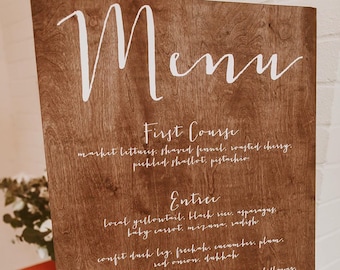 Menu
First Course
market lettuces, shaved fennel, roasted cherry,
pickled shallot, pistachio
Entree
local yellowtail, black rice, asparagus,
baby carrot, mizuna, radish
confit duck leg, freekah, cucumber, plum,
red onion, dukkah